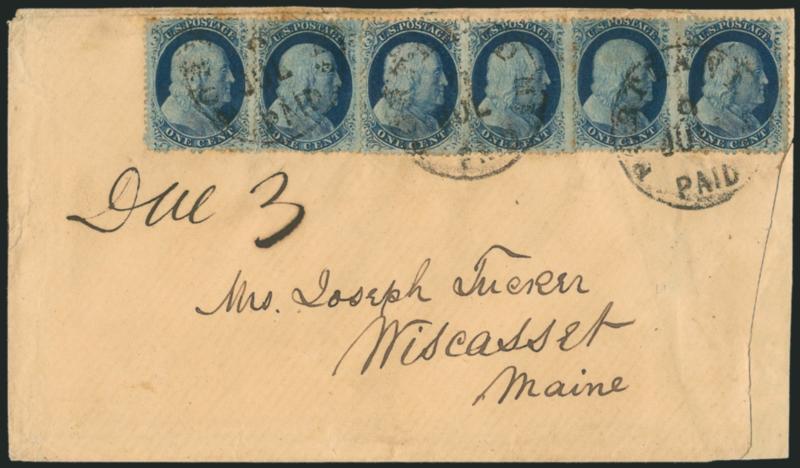 U.S. POSTAGE U.S. POSTAGE U.S. POSTAGE U.S. POSTAGE U.S. POSTAGE U.S. POSTAGE
ONE CENT ONE CENT ONE CENT ONE CENT ONE CENT ONE CENT
JUL
PAID
JUL
PAID
Due 3
Mrs. Joseph Tucker
Wiscasset
Maine